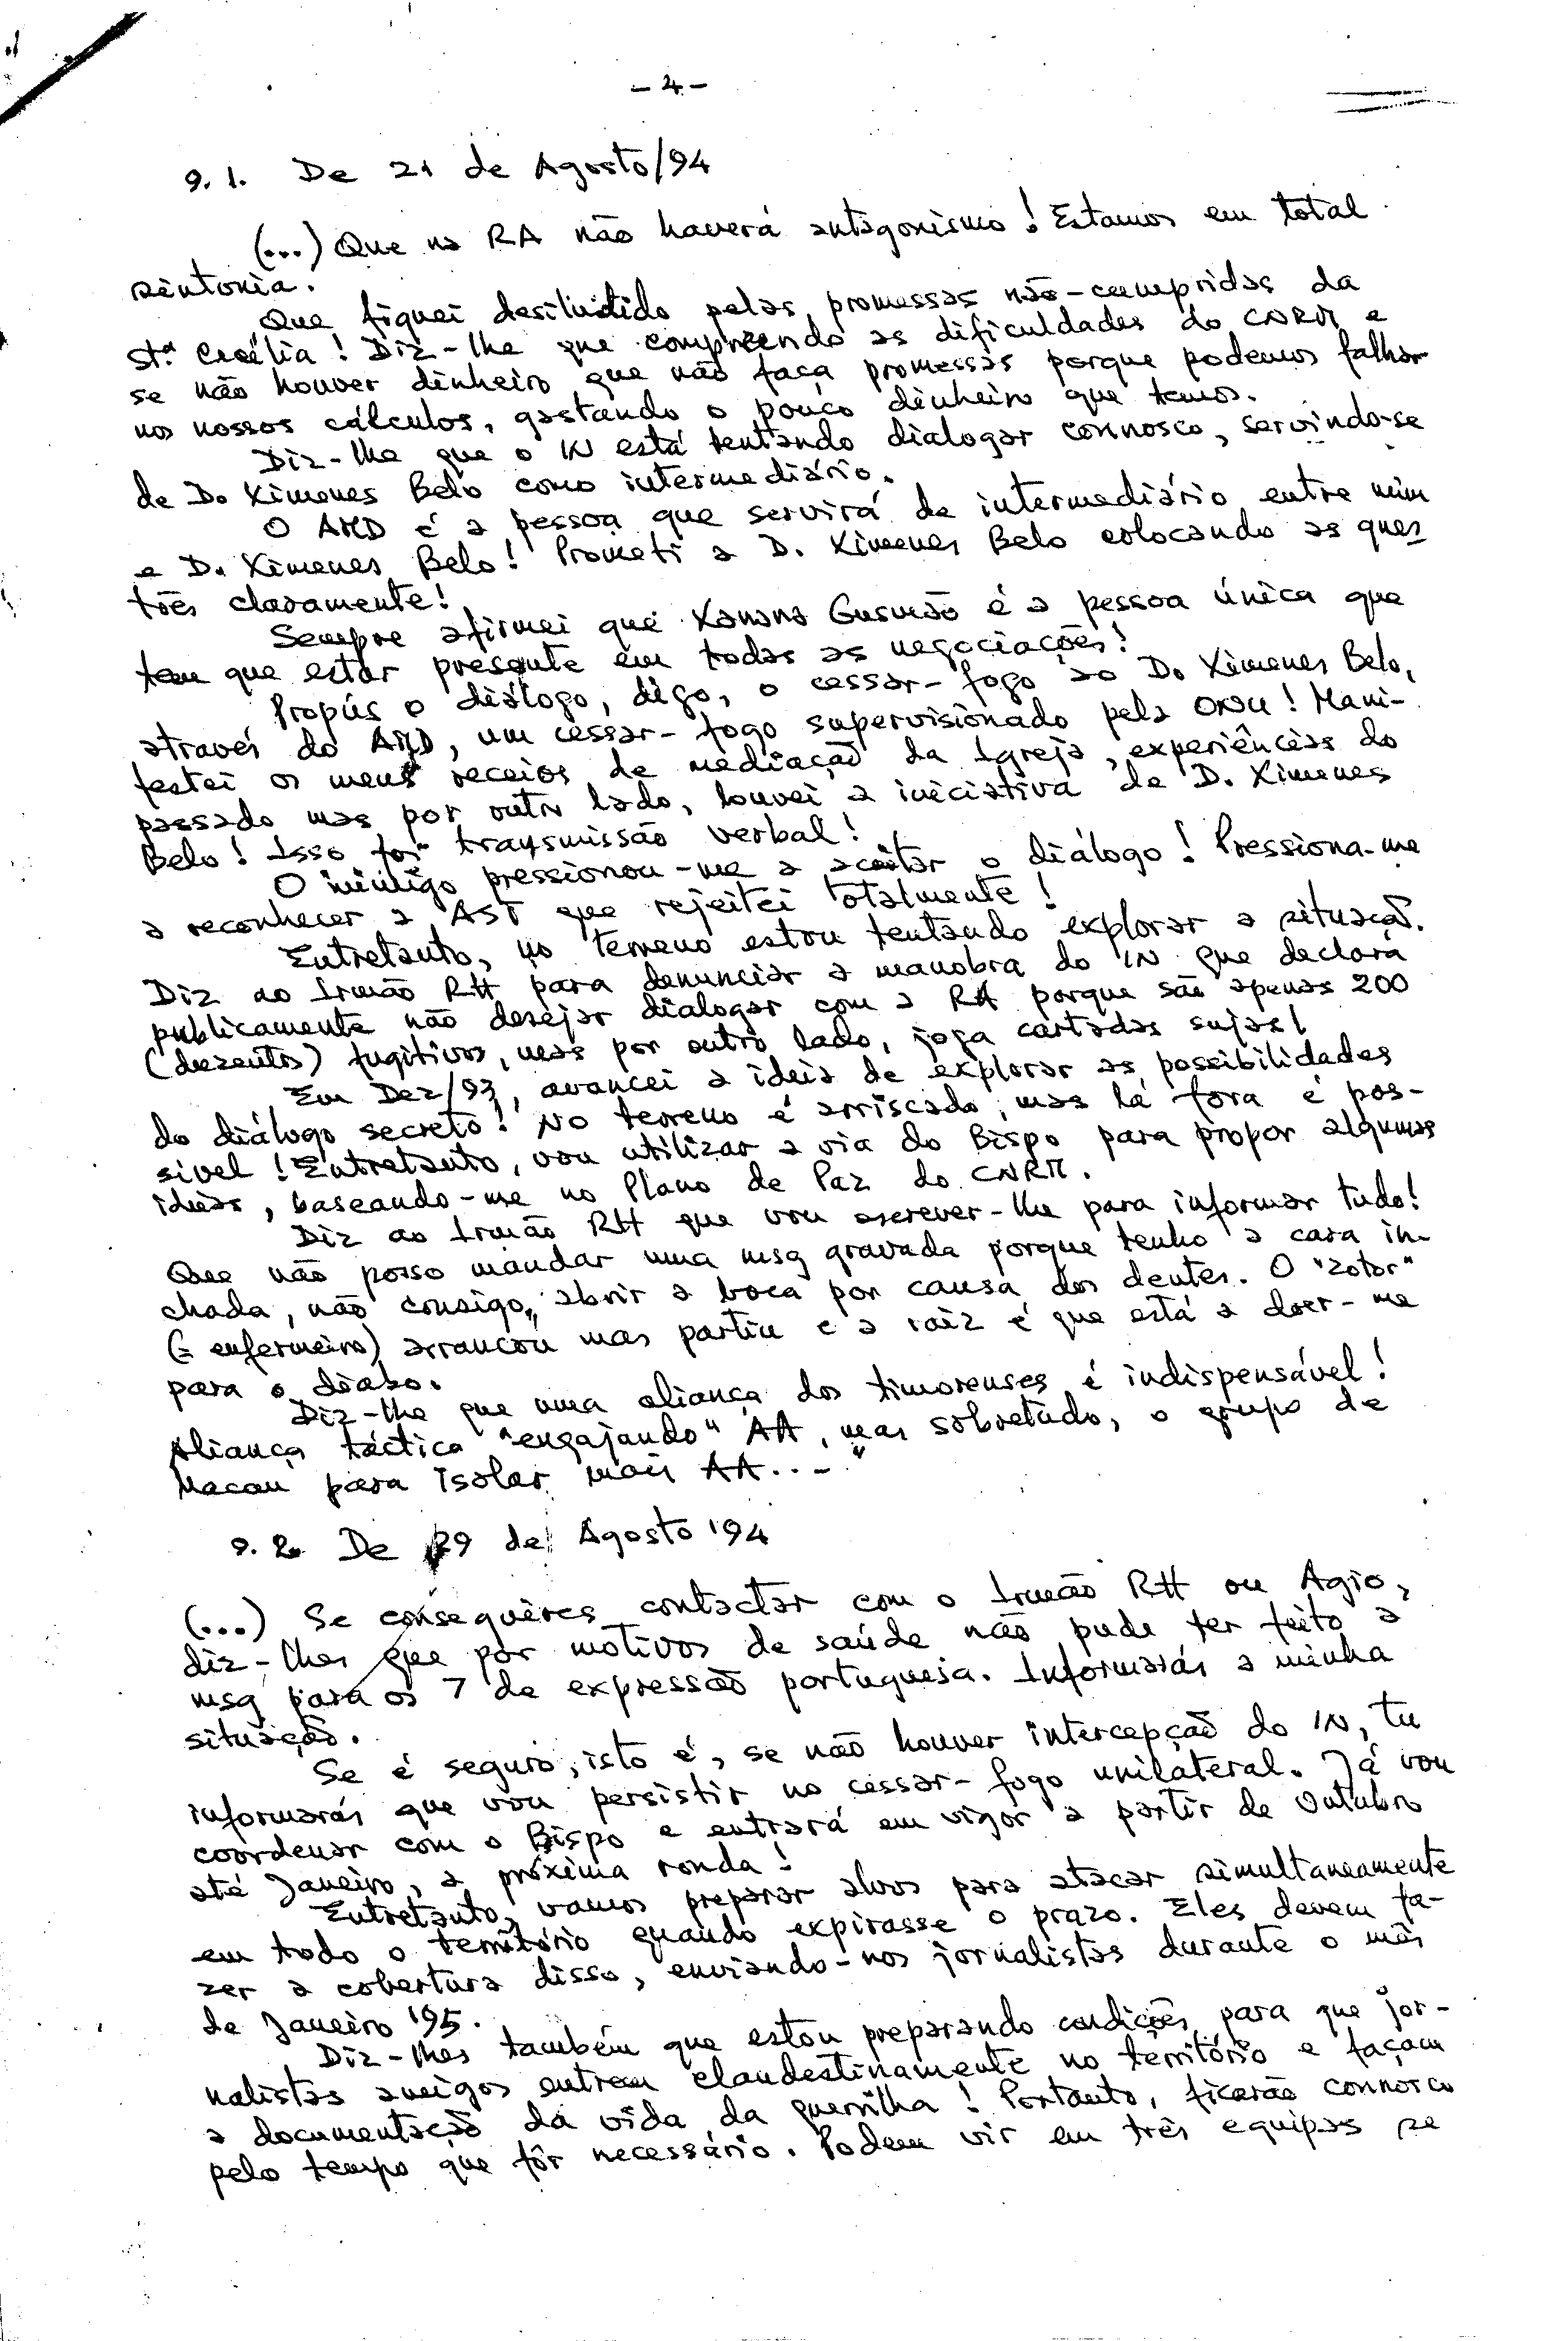 - 4 -
9.1. De 21 de Agosto/94
(...) Que na RA não haverá antagonismo! Estamos em total
sintonia.
Que fiquei desiludido pelas promessas não-cumpridas da
Stª Cecília! Diz-lhe que compreendo as dificuldades do CNRM e
se não houver dinheiro que não faça promessas porque podemos falhar
nos nossos cálculos, gastando o pouco dinheiro que temos.
Diz-lhe que o IN está tentando dialogar connosco, servindo-se
de D. Ximenes Belo como intermediário.
O AMD é a pessoa que servirá de intermediário entre mim
e D. Ximenes Belo! Prometi a D. Ximenes Belo colocando as ques
tões claramente!
Sempre afirmei que Xanana Gusmão é a pessoa única que
tem que estar presente em todas as negociações!
Propús o diálogo, digo, o cessar-fogo ao D. Ximenes Belo,
através do AMD, um cessar-fogo supervisionado pela ONU! Mani-
festei os meus receios de mediação da Igreja, experiências do
passado mas por outro lado, louvei a iniciativa de D. Ximenes
Belo! Isso foi transmissão verbal!
O inimigo pressionou-me a aceitar o diálogo! Pressiona-me
a reconhecer a AST que rejeitei totalmente!
Entretanto, no terreno estou tentando explorar a situação.
Diz ao Irmão RH para denunciar a manobra do IN que declara
publicamente não desejar dialogar com a RA porque são apenas 200
(duzentos) fugitivos, mas por outro lado, joga cartadas sujas!
Em Dez/93, avancei a ideia de explorar as possibilidades
do diálogo secreto! No terreno é arriscado, mas lá fora é pos-
sível! Entretanto, vou utilizar a via do Bispo para propor algumas
ideias, baseando-me no Plano de Paz do CNRM.
Diz ao Irmão RH que vou escrever-lhe para informar tudo!
Que não posso mandar uma msg gravada porque tenho a cara in-
chada, não consigo abrir a boca por causa dos dentes. O "zotor"
(= enfermeiro) arrancou mas partiu e a raiz é que está a doer-me
para o diabo.
Diz-lhe que uma aliança dos timorenses é indispensável!
Aliança táctica "engajando" AA, mas sobretudo, o grupo de
Macau para isolar mais AA...-"
9.2. De 29 de Agosto '94
(...) Se conseguires contactar com o Irmão RH ou Agio,
diz-lhes que por motivos de saúde não pude ter feito a
msg para os 7 de expressão portuguesa. Informarás a minha
situação.
Se é seguro, isto é, se não houver intercepção do IN, tu
informarás que vou persistir no cessar-fogo unilateral. Já vou
coordenar com o Bispo e entrará em vigor a partir de Outubro
até Janeiro, a próxima ronda!
Entretanto, vamos preparar alvos para atacar simultaneamente
em todo o território quando expirasse o prazo. Eles devem fa-
zer a cobertura disso, enviando-nos jornalistas durante o mês
de Janeiro '95.
Diz-lhes também que estou preparando condições para que jor-
nalistas amigos entrem clandestinamente no território e façam
a documentação da vida da guerrilha! Portanto, ficarão connosco
pelo tempo que fôr necessário. Podem vir em três equipas se